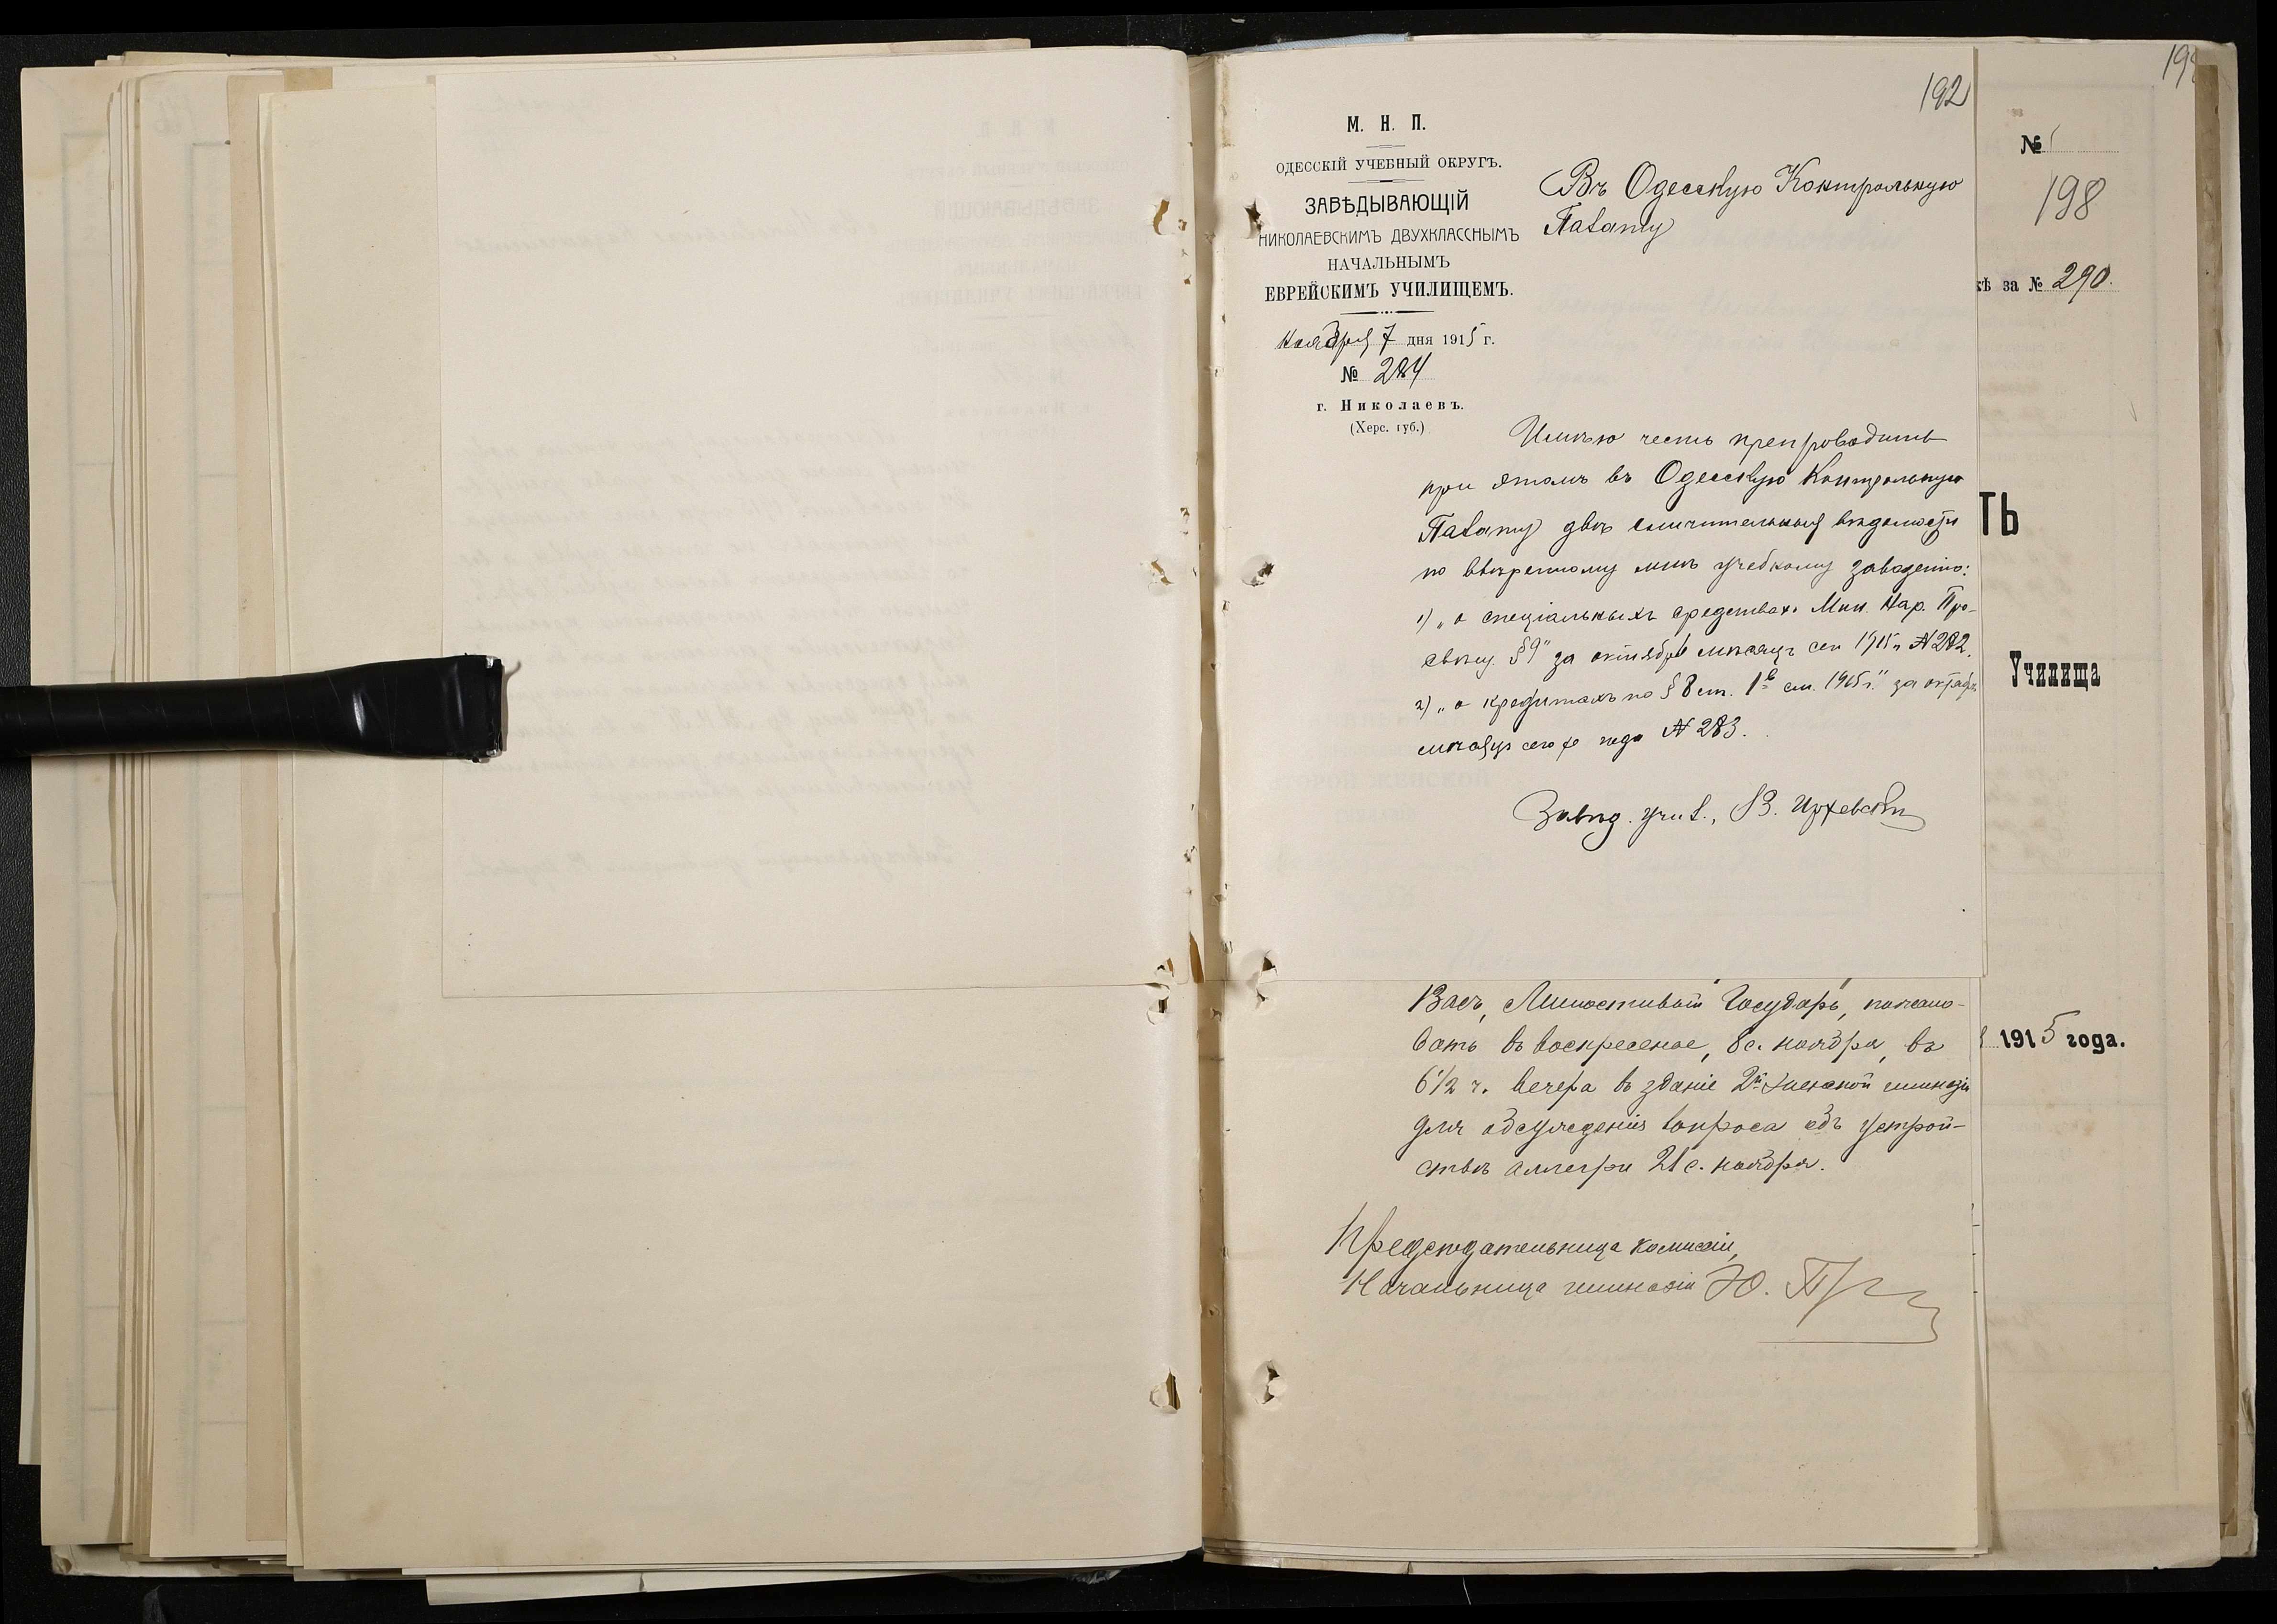 192
М. Н. П.
ОДЕССКІЙ УЧЕБНЫЙ ОКРУГЪ.
ЗАВѢДЫВАЮЩІЙ
НИКОЛАЕВСКИМЪ ДВУХКЛАССНЫМЪ
НАЧАЛЬНЫМЪ
ЕВРЕЙСКИМЪ УЧИЛИЩЕМЪ.
ноября 7 дня 1915 г.
№ 284
г. Николаевъ.
(Херс. губ.)
Въ Одесскую Контрольную
Палату
Имѣю честь препроводить
при этомъ въ Одесскую Контрольную
Палату двѣ сличительныя вѣдомости
по ввѣренному мнѣ учебному заведенію:
1) „о спеціальныхъ средствахъ Мин. Нар. Про-
свѣщ. §9" за октябрь мѣсяцъ сег 1915 г. № 282.
2) „о кредитахъ по § 8 ст. 1 см. 1915 г." за октябрь
мѣсяцъ сего же года № 283.
Завѣд. учил., В.
Васъ, Милостивый Государь, пожало-
вать въ воскресенье, 8 с. ноября, въ
6 1/2 ч. вечера въ зданіе 2й Женской гимназіи
для обсужденія вопроса объ устрой-
ствѣ аллегри 21 с. ноября.
Предсѣдательница комиссіи,
Начальница гимназіи Ю.
№
198
кѣ за № 290.
ТЬ
Училища
1915 года.